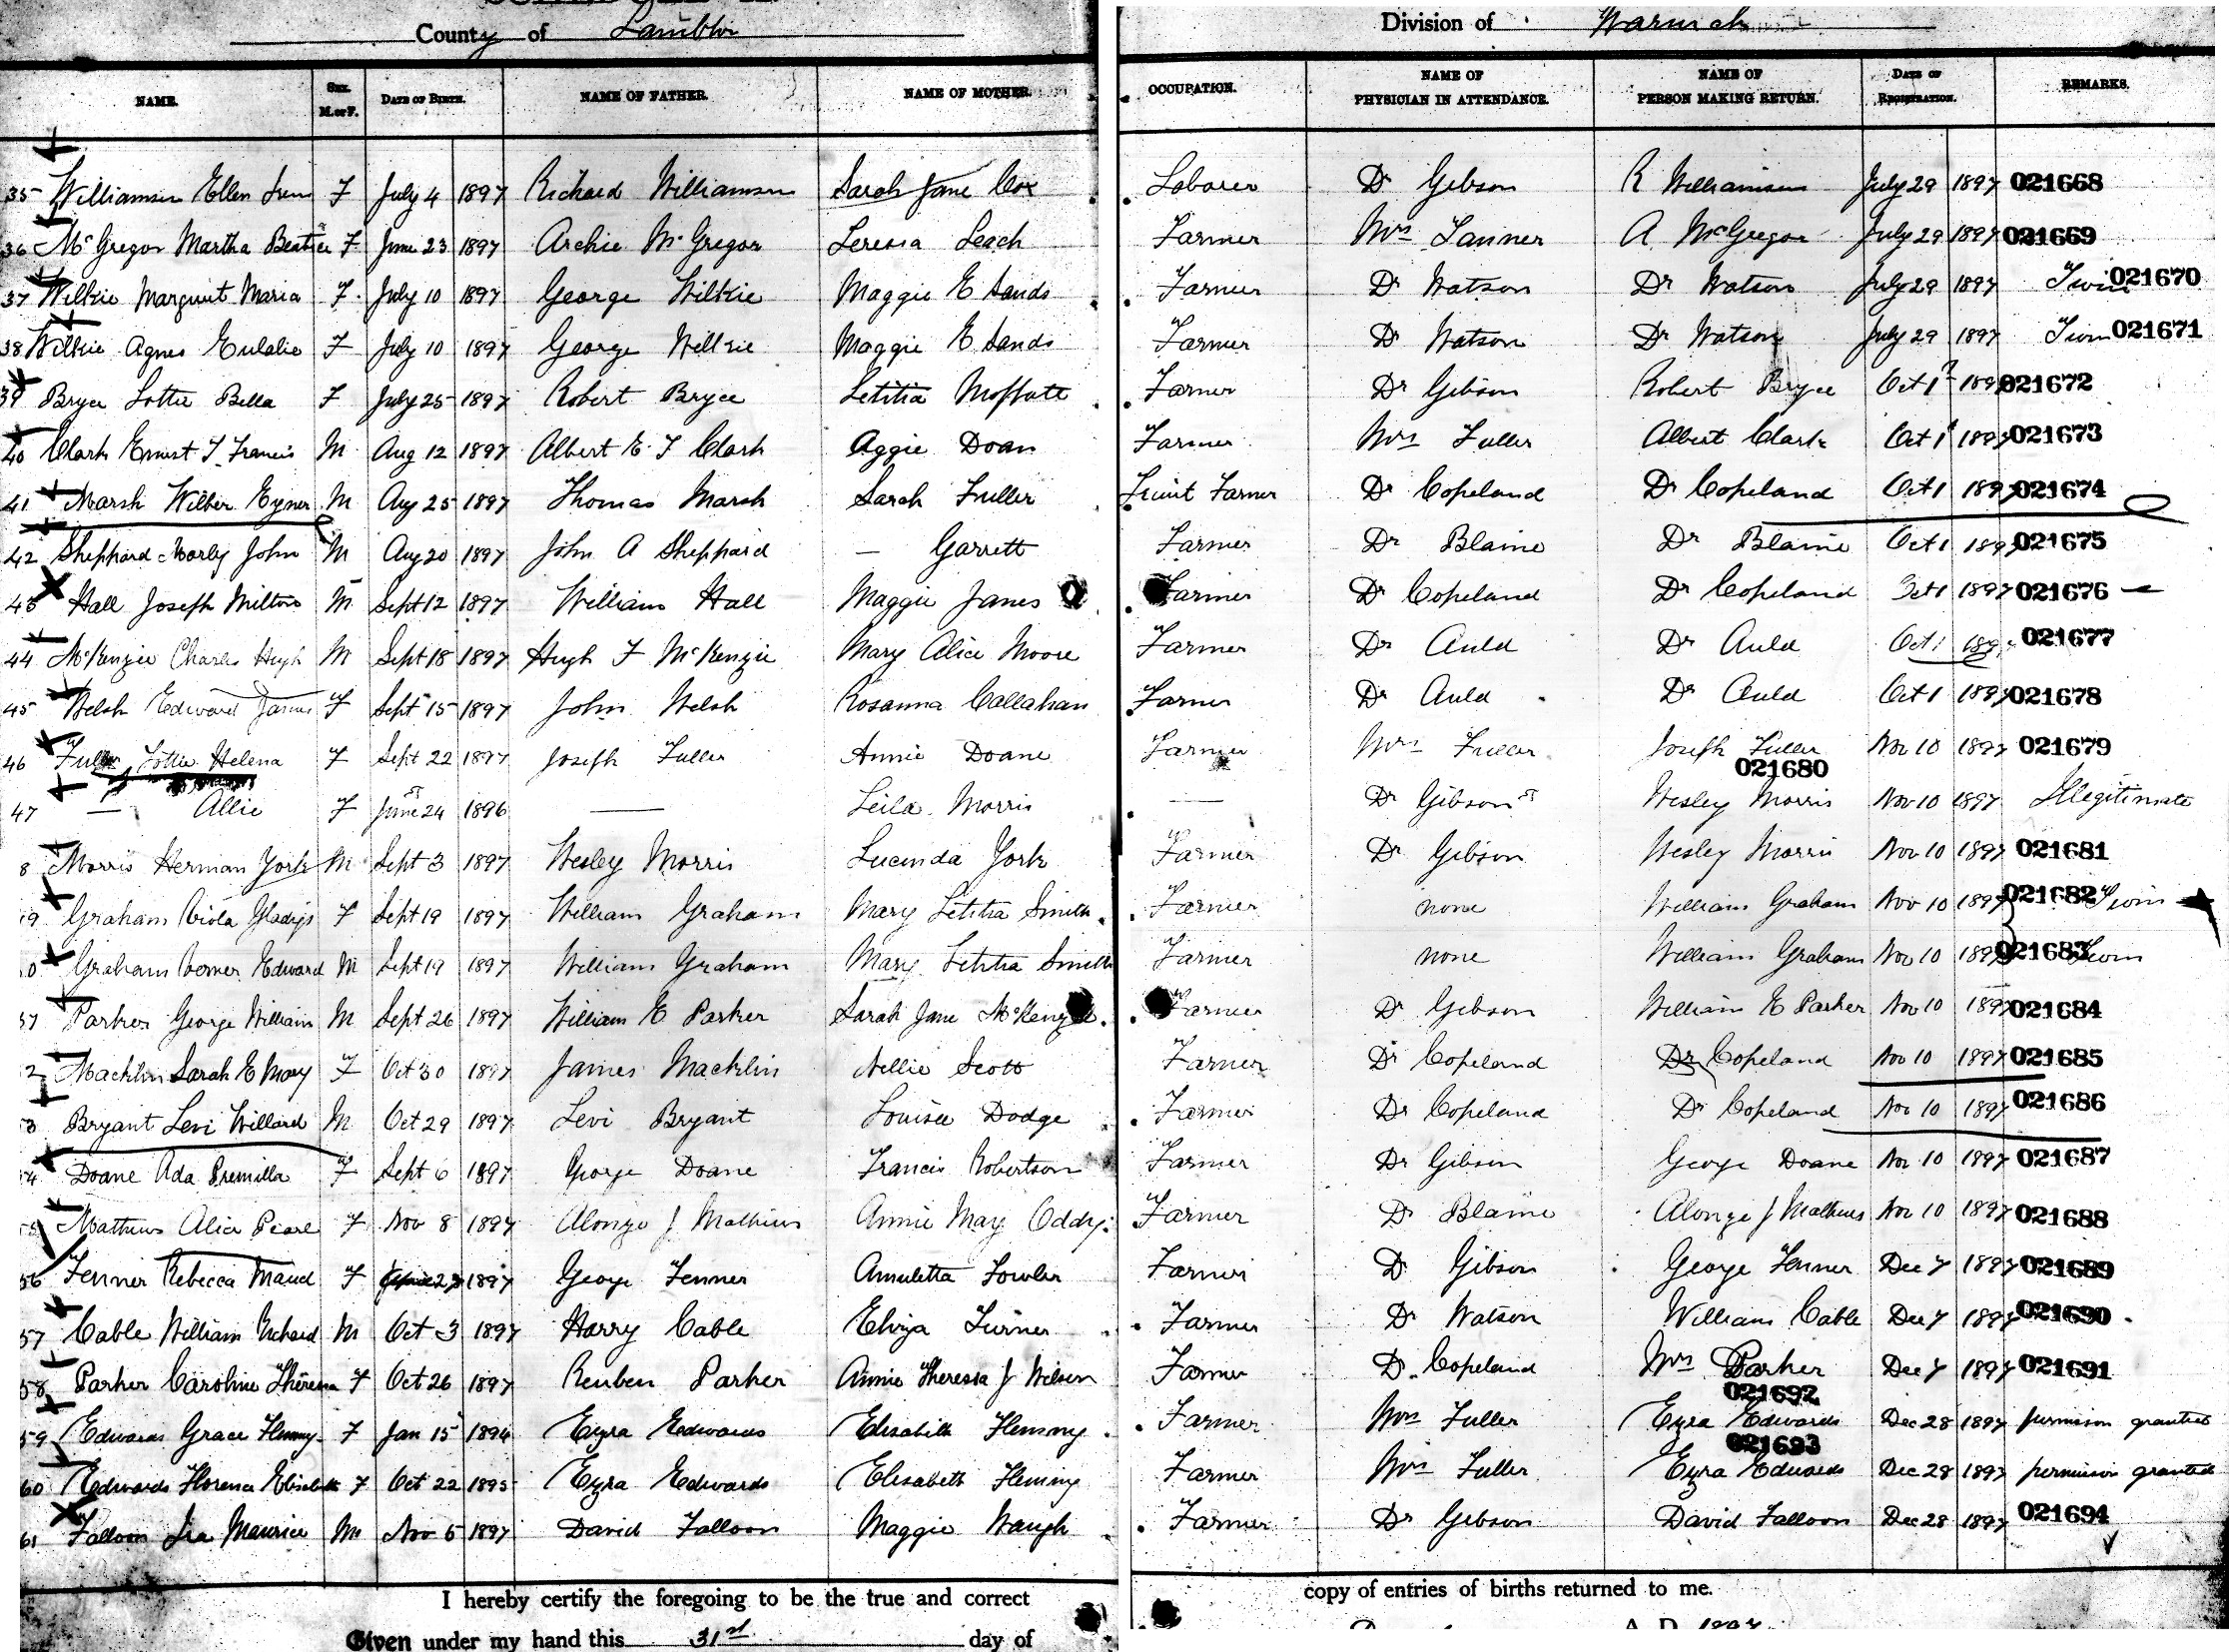 County of Lambton Division of Warwick
NAME. SEX. M. or F. DATE OF BIRTH. NAME OF FATHER. NAME OF MOTHER. OCCUPATION. NAME OF PHYSICIAN IN ATTENDANCE. NAME OF PERSON MAKING RETURN. DATE OF REGISTRATION. REMARKS.
35 Williamson Ellen Irene F July 4 1897 Richard Williamson Sarah Jane Cox Laborer Dr Gibson R Williamson July 29 1897 021668
36 McGregor Martha Beatrice F June 23 1897 Archie McGregor Teresia Leach Farmer Mrs Tanner A McGregor July 29 1897 021669
37 Wilkie Margaret Maria F. July 10 1897 George Wilkie Maggie E Sands Farmer Dr Watson Dr Watson July 29 1897 Twin 021670
38 Wilkie Agnes Eulalie F July 10 1897 George Wilkie Maggie E Sands Farmer Dr Watson Dr Watson July 29 1897 Twin 021671
39 Bryce Lottie Bella F July 25 1897 Robert Bryce Letitia Moffatt Farmer Dr Gibson Robert Bryce Oct 1 1897 021672
40 Clark Ernest T Francis M Aug 12 1897 Albert E. T Clark Aggie Doan Farmer Mrs Fuller Albert Clark Oct 1 1897 021673
41 Marsh Wilber M Aug 25 1897 Thomas Marsh Sarah Fuller Fruit Farmer Dr Copeland Dr Copeland Oct 1 1897 021674
42 Sheppard Morley John M Aug 20 1897 John A Sheppard — Garrett Farmer Dr Blaine Dr Blaine Oct 1 1897 021675
43 Hall Joseph Milton M Sept 12 1897 William Hall Maggie Janes Farmer Dr Copeland Dr Copeland Oct 1 1897 021676
44 McKenzie Charles Hugh M Sept 18 1897 Hugh F McKenzie Mary Alice Moore Farmer Dr Auld Dr Auld Oct 1 1897 021677
45 Welsh Edward James F Sept 15 1897 John Welsh Rosanna Callahan Farmer Dr Auld Dr Auld Oct 1 1897 021678
46 Fuller Lottie Helena F Sept 22 1897 Joseph Fuller Annie Doane Farmer Mrs Fuller Joseph Fuller Nov 10 1897 021679
021680
47 — Allie F June 24 1896 — Leila Morris — Dr Gibson Wesley Morris Nov 10 1897 Illegitimate
8 Morris Herman York M Sept 3 1897 Wesley Morris Lucinda York Farmer Dr Gibson Wesley Morris Nov 10 1897 021681
49 Graham Viola Gladys F Sept 19 1897 William Graham Mary Letitia Smith Farmer none William Graham Nov 10 1897 021682 Twin
0 Graham Verner Edward M Sept 19 1897 William Graham Mary Letitia Smith Farmer none William Graham Nov 10 1897 021683 Twin
51 Parker George William M Sept 26 1897 William E Parker Sarah Jane McKenzie Farmer Dr Gibson William E Parker Nov 10 1897 021684
2 Macklin Sarah E Mary F Oct 30 1897 James Macklin Nellie Scott Farmer Dr Copeland Dr Copeland Nov 10 1897 021685
3 Bryant Levi Willard M Oct 29 1897 Levi Bryant Louisa Dodge Farmer Dr Copeland Dr Copeland Nov 10 1897 021686
54 Doane Ada Premilla F Sept 6 1897 George Doane Francis Robertson Farmer Dr Gibson George Doane Nov 10 1897 021687
55 Mathews Alice Pearl F Nov 8 1897 Alonzo J Mathews Annie May Oddy Farmer Dr Blaine Alonzo J Mathews Nov 10 1897 021688
56 Fenner Rebecca Maud F 1897 George Fenner Amuletta Fowler Farmer Dr Gibson George Fenner Dec 7 1897 021689
57 Cable William Richard M Oct 3 1897 Harry Cable Eliza Turner Farmer Dr Watson William Cable Dec 7 1897 021690
58 Parker Caroline Theresa F Oct 26 1897 Reuben Parker Annie Theressa J Wilson Farmer Dr Copeland Mrs Parker Dec 7 1897 021691
021692
59 Edwards Grace Flemmy F Jan 15 1894 Ezra Edwards Elisabeth Flemmy Farmer Mrs Fuller Ezra Edwards Dec 28 1897 permission granted
021693
60 Edwards Florence Elisabeth F Oct 22 1895 Ezra Edwards Elisabeth Fleming Farmer Mrs Fuller Ezra Edwards Dec 28 1897 permission granted
61 Falloon Ira Maurice M Nov 5 1897 David Falloon Maggie Waugh Farmer Dr Gibson David Falloon Dec 28 1897 021694
I hereby certify the foregoing to be the true and correct copy of entries of births returned to me.
Given under my hand this 31st day of A. D. 1897